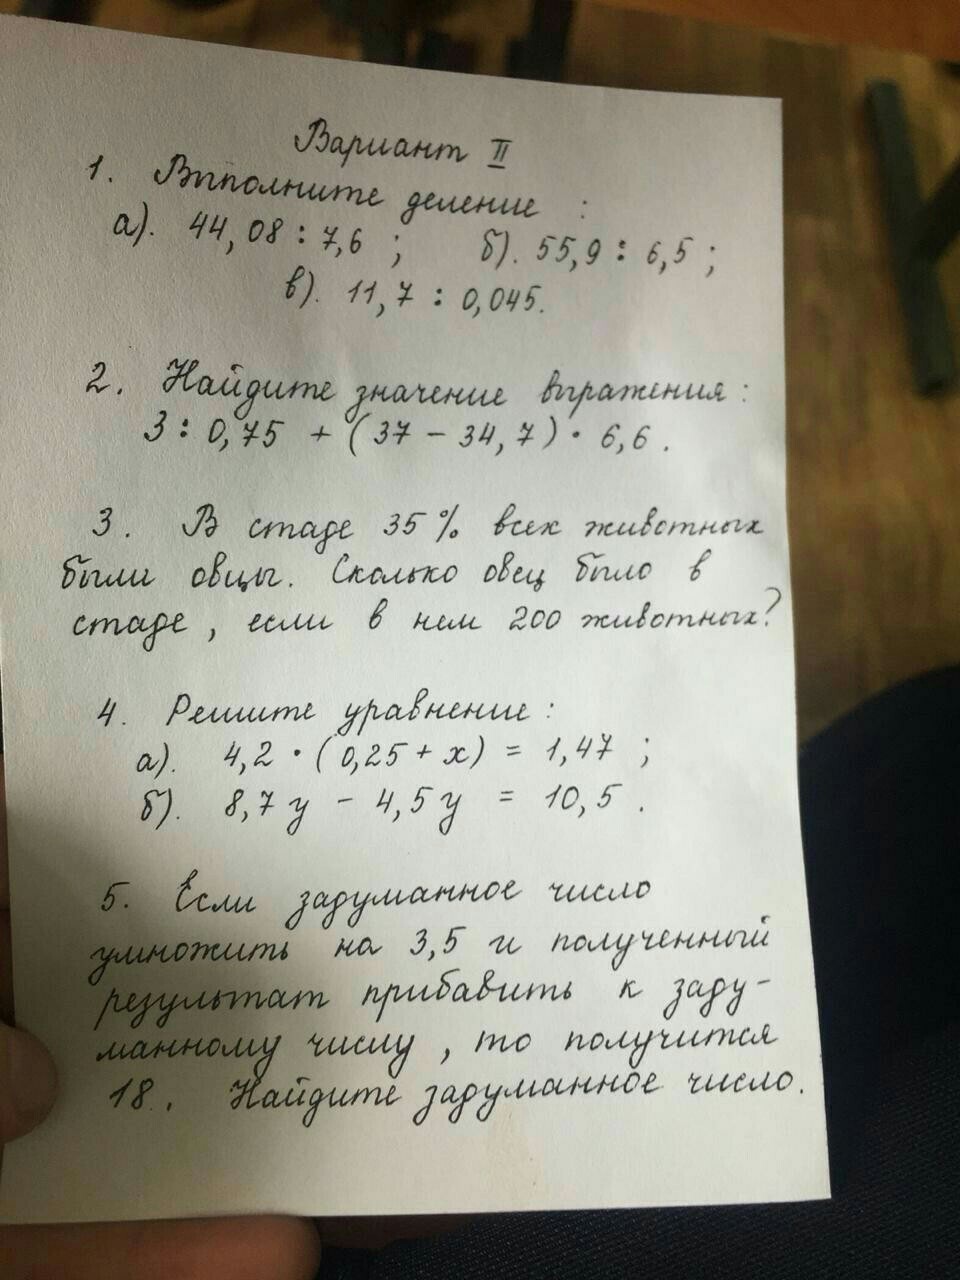 Вариант II
1. Выполните деление :
а). 44,08 : 7,6 ; б). 55,9 : 6,5 ;
в). 11,7 : 0,045.
2. Найдите значение выражения :
3 : 0,75 + ( 37 - 34,7 ) · 6,6 .
3. В стаде 35 % всех животных
были овцы. Сколько овец было в
стаде , если в нем 200 животных?
4. Решите уравнение :
а). 4,2 · ( 0,25 + x ) = 1,47 ;
б). 8,7 y - 4,5 y = 10,5 .
5. Если задуманное число
умножить на 3,5 и полученный
результат прибавить к заду-
манному числу , то получится
18 . Найдите задуманное число.